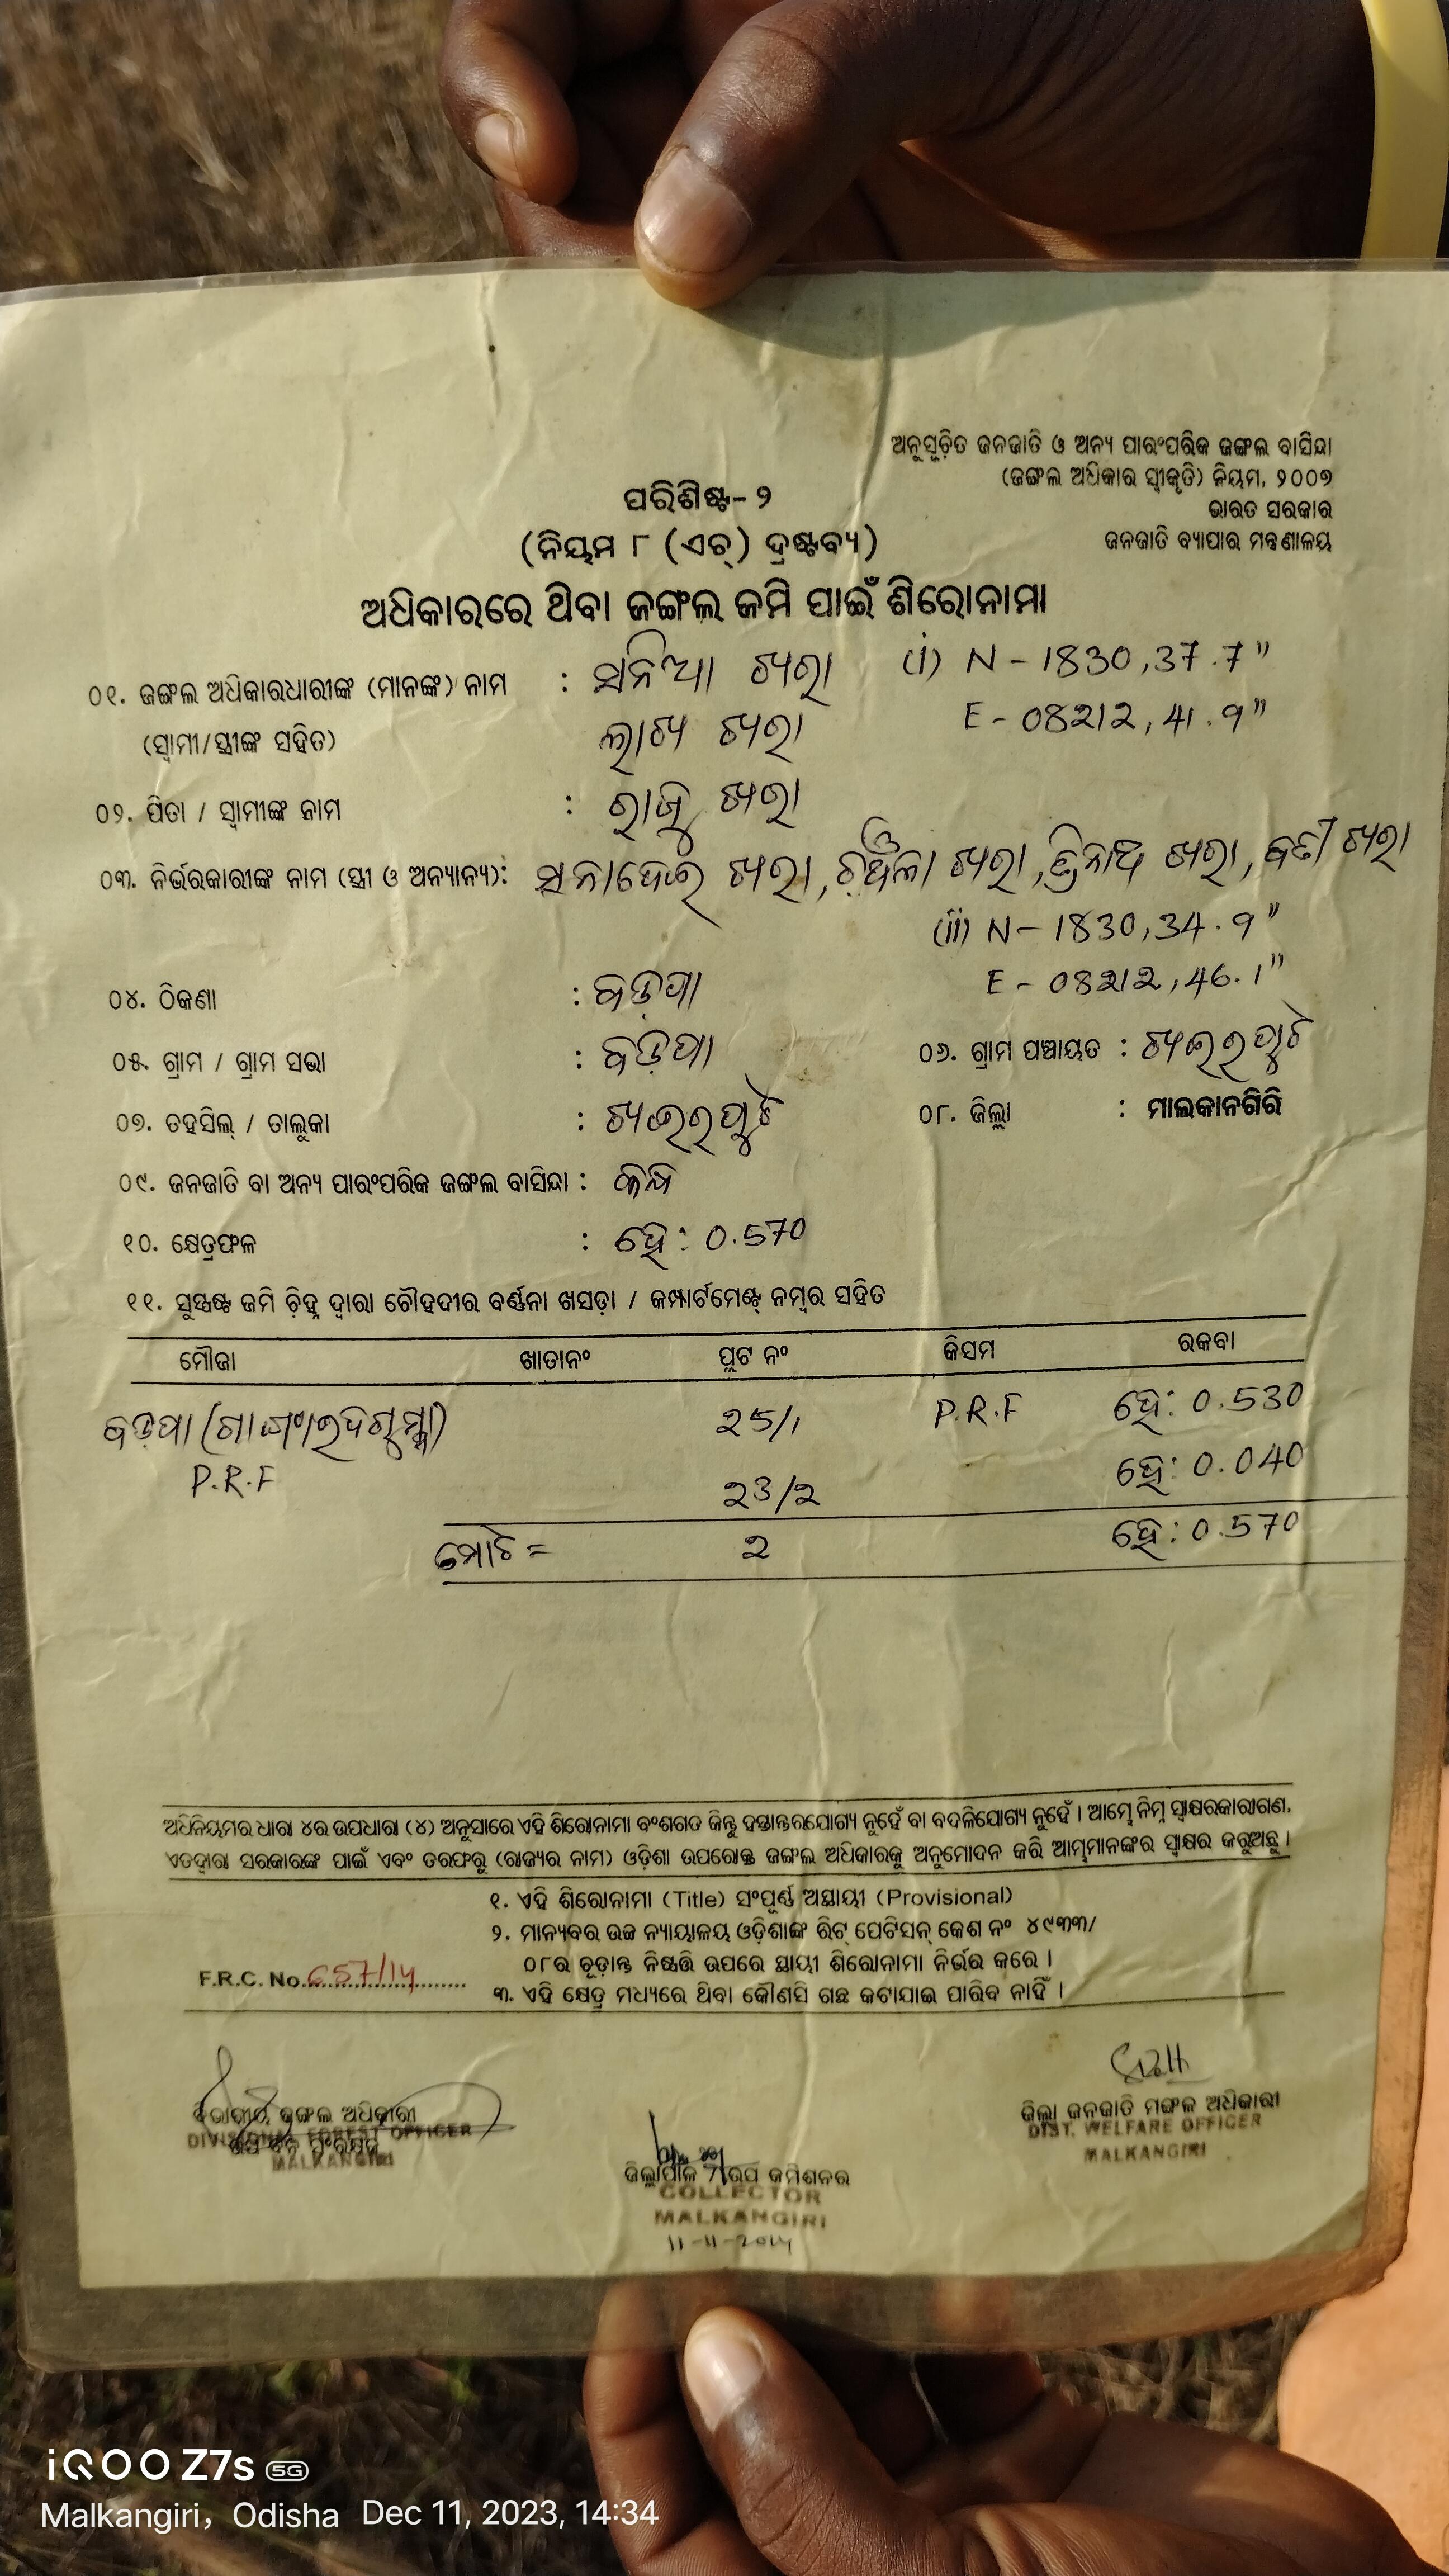 ଅନୁସୂଚିତ ଜନଜାତି ଓ ଅନ୍ୟ ପାରଂପରିକ ଜଙ୍ଗଲ ବାସିନ୍ଦା
(ଜଙ୍ଗଲ ଅଧିକାର ସ୍ୱୀକୃତି) ନିୟମ, ୨୦୦୭
ଭାରତ ସରକାର
ଜନଜାତି ବ୍ୟାପାର ମନ୍ତ୍ରଣାଳୟ
ପରିଶିଷ୍ଟ- ୨
(ନିୟମ ୮ (ଏଚ୍) ଦ୍ରଷ୍ଟବ୍ୟ)
ଅଧିକାରରେ ଥିବା ଜଙ୍ଗଲ ଜମି ପାଇଁ ଶିରୋନାମା
୦୧. ଜଙ୍ଗଲ ଅଧିକାରଧାରୀଙ୍କ (ମାନଙ୍କ) ନାମ : ସନିଆ ଖରା (i) N - 1830,37.7"
(ସ୍ୱାମୀ/ସ୍ତ୍ରୀଙ୍କ ସହିତ) ଲାଖ ଖରା E - 08212, 41.9"
୦୨. ପିତା / ସ୍ୱାମୀଙ୍କ ନାମ : ରାଜୁ ଖରା
୦୩. ନିର୍ଭରକାରୀଙ୍କ ନାମ (ସ୍ତ୍ରୀ ଓ ଅନ୍ୟାନ୍ୟ): ସନାଦେଈ ଖରା, ଖରା, ଖରା, ଖରା
(ii) N - 1830,34.9"
E - 08212,46.1"
୦୪. ଠିକଣା : ବଡ଼ପା
୦୫. ଗ୍ରାମ / ଗ୍ରାମ ସଭା : ବଡ଼ପା ୦୬. ଗ୍ରାମ ପଞ୍ଚାୟତ : ଖଇରପୁଟ
୦୭. ତହସିଲ୍ / ତାଲୁକା : ଖଇରପୁଟ ୦୮. ଜିଲ୍ଲା : ମାଲକାନଗିରି
୦୯. ଜନଜାତି ବା ଅନ୍ୟ ପାରଂପରିକ ଜଙ୍ଗଲ ବାସିନ୍ଦା :
୧୦. କ୍ଷେତ୍ରଫଳ : ହେ: 0.570
୧୧. ସୁସ୍ପଷ୍ଟ ଜମି ଚିହ୍ନ ଦ୍ୱାରା ଚୌହଦୀର ବର୍ଣ୍ଣନା ଖସଡ଼ା / କମ୍ପାର୍ଟମେଣ୍ଟ୍ ନମ୍ବର ସହିତ
ମୌଜା ଖାତାନଂ ପ୍ଲଟ ନଂ କିସମ ରକବା
ବଡ଼ପା 25/1 P.R.F ହେ: 0.530
P.R.F 23/2 ହେ: 0.040
ମୋଟ = 2 ହେ: 0.570
ଅଧିନିୟମର ଧାରା ୪ର ଉପଧାରା (୪) ଅନୁସାରେ ଏହି ଶିରୋନାମା ବଂଶଗତ କିନ୍ତୁ ହସ୍ତାନ୍ତରଯୋଗ୍ୟ ନୁହେଁ ବା ବଦଳିଯୋଗ୍ୟ ନୁହେଁ । ଆମ୍ଭେ ନିମ୍ନ ସ୍ୱାକ୍ଷରକାରୀଗଣ,
ଏତଦ୍ୱାରା ସରକାରଙ୍କ ପାଇଁ ଏବଂ ତରଫରୁ (ରାଜ୍ୟର ନାମ) ଓଡ଼ିଶା ଉପରୋକ୍ତ ଜଙ୍ଗଲ ଅଧିକାରକୁ ଅନୁମୋଦନ କରି ଆମ୍ଭମାନଙ୍କର ସ୍ୱାକ୍ଷର କରୁଅଛୁ ।
୧. ଏହି ଶିରୋନାମା (Title) ସଂପୂର୍ଣ୍ଣ ଅସ୍ଥାୟୀ (Provisional)
୨. ମାନ୍ୟବର ଉଚ୍ଚ ନ୍ୟାୟାଳୟ ଓଡ଼ିଶାଙ୍କ ରିଟ୍ ପେଟିସନ୍ କେଶ ନଂ ୪୯୩୩/
୦୮ର ଚୂଡ଼ାନ୍ତ ନିଷ୍ପତ୍ତି ଉପରେ ସ୍ଥାୟୀ ଶିରୋନାମା ନିର୍ଭର କରେ ।
F.R.C. No. 657/14
୩. ଏହି କ୍ଷେତ୍ର ମଧ୍ୟରେ ଥିବା କୌଣସି ଗଛ କଟାଯାଇ ପାରିବ ନାହିଁ ।
ବିଭାଗୀୟ ଜଙ୍ଗଲ ଅଧିକାରୀ
DIVISIONAL FOREST OFFICER
MALKANGIRI
ଜିଲ୍ଲାପାଳ / ଉପ କମିଶନର
COLLECTOR
MALKANGIRI
11-11-2014
ଜିଲ୍ଲା ଜନଜାତି ମଙ୍ଗଳ ଅଧିକାରୀ
DIST. WELFARE OFFICER
MALKANGIRI
iQOO Z7s 5G
Malkangiri, Odisha Dec 11, 2023, 14:34